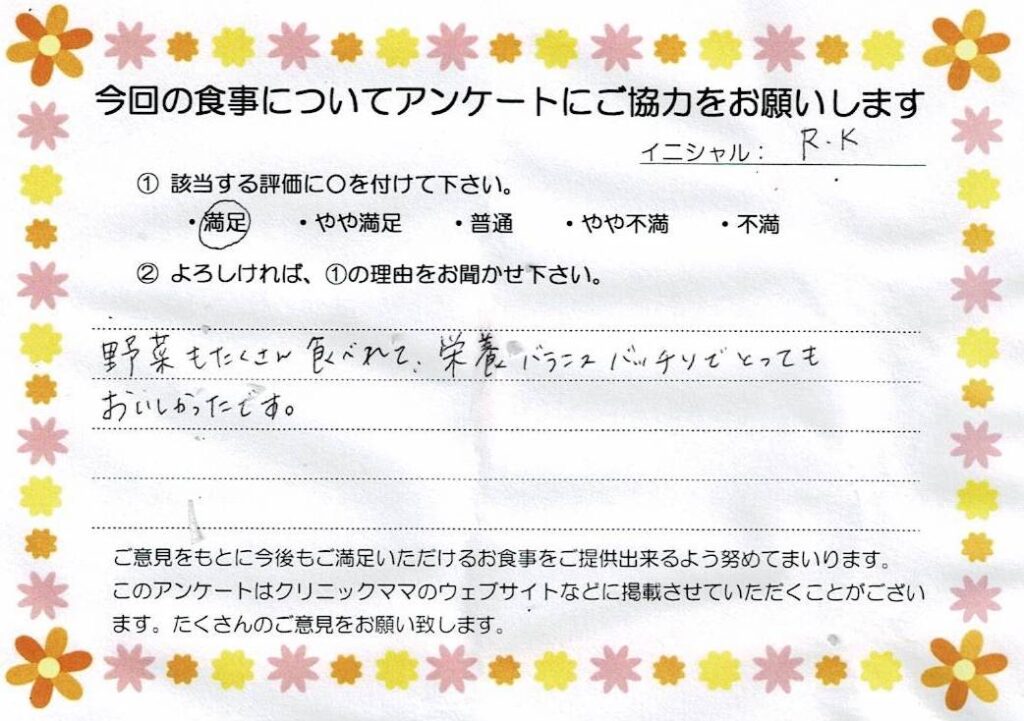 今回の食事についてアンケートにご協力をお願いします
イニシャル： R.K
① 該当する評価に○を付けて下さい。
・満足 ・やや満足 ・普通 ・やや不満 ・不満
② よろしければ、①の理由をお聞かせ下さい。
野菜もたくさん食べれて、栄養バランスバッチリでとっても
おいしかったです。
ご意見をもとに今後もご満足いただけるお食事をご提供出来るよう努めてまいります。
このアンケートはクリニックママのウェブサイトなどに掲載させていただくことがござい
ます。たくさんのご意見をお願い致します。